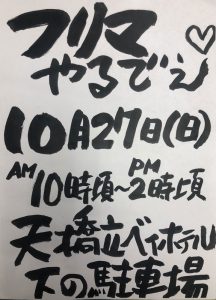 フリマ
やるでぇ♡
10月27日(日)
AM10時頃〜PM2時頃
天橋立ベイホテル
下の駐車場